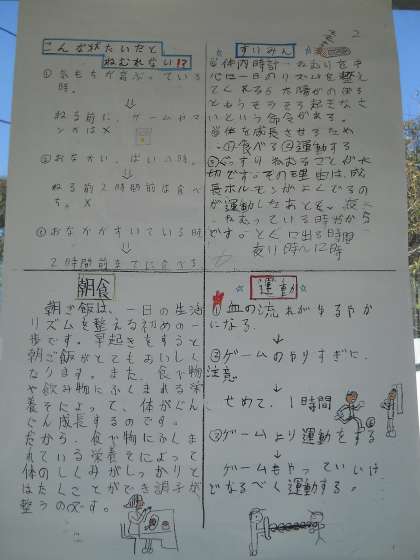 2
こんな状たいだと
ねむれない!?
①気もちが高ぶっている
時。
⇓
ねる前に、ゲームやマ
ンガは×
②おなかいっぱいの時。
⇓
ねる前2時間前は食べ
③おなかがすいている時
⇓
2時間前までに食べる
すいみん
てくれるよ
ともうそろそろ起きなさ
いという命令がある。
体を成長させるため
①食べる②運動する
ぐっすりねむることが大
切です。その理由は、成
長ホルモンがよくでるの
が運動したあとと、夜に
ねむっている時だから
です。とくに出る時間
夜11時~12時
朝食
朝ご飯は、一日の生活
リズムを整える初めの一
歩です。早起きをすると
朝ご飯がとてもおいしく
なります。また、食べ物
や飲み物にふくまれる栄
養そによって、体がぐん
ぐん成長するのです。
だから、食べ物にふくま
れている栄養そによって
体のしくみがしっかりと
はたらくことができ調子が
整うのです。
☆運動☆
①血の流れがゆるやか
になる
↓
②ゲームのやりすぎに
注意
↓
せめて、1時間
③ゲームより運動をする
↓
ゲームもやっていいけ
どなるべく運動する。